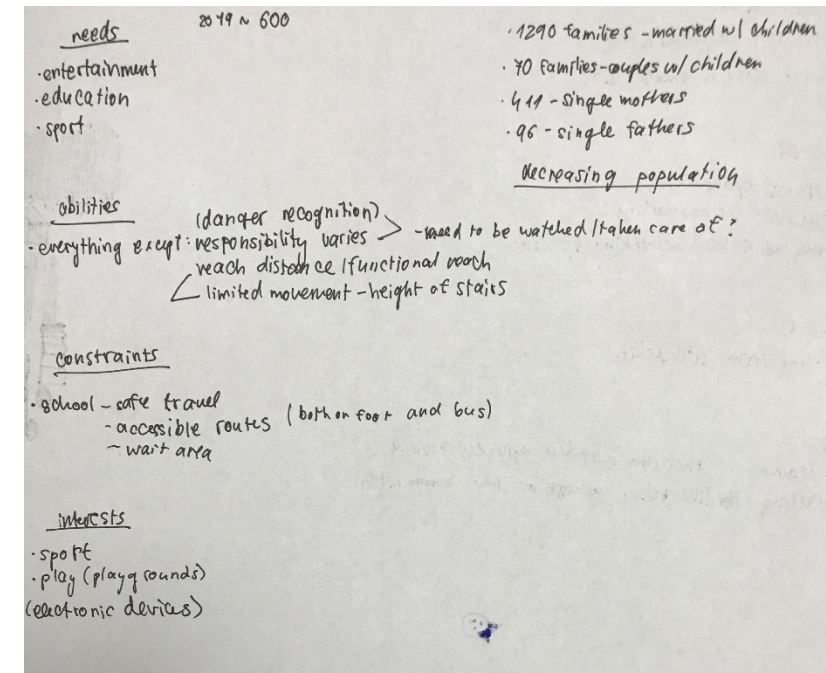 needs
2019 ~ 600
· entertainment
· education
· sport
· 1290 families - married w/ children
· 70 families - couples w/ children
· 411 - single mothers
· 96 - single fathers
decreasing population
abilities
(danger recognition)
· everything except: responsibility varies > - need to be watched/taken care of?
reach distance/functional reach
limited movement - height of stairs
constraints
· school - safe travel
- accessible routes (both on foot and bus)
- wait area
interests
· sport
· play (playgrounds)
(electronic devices)